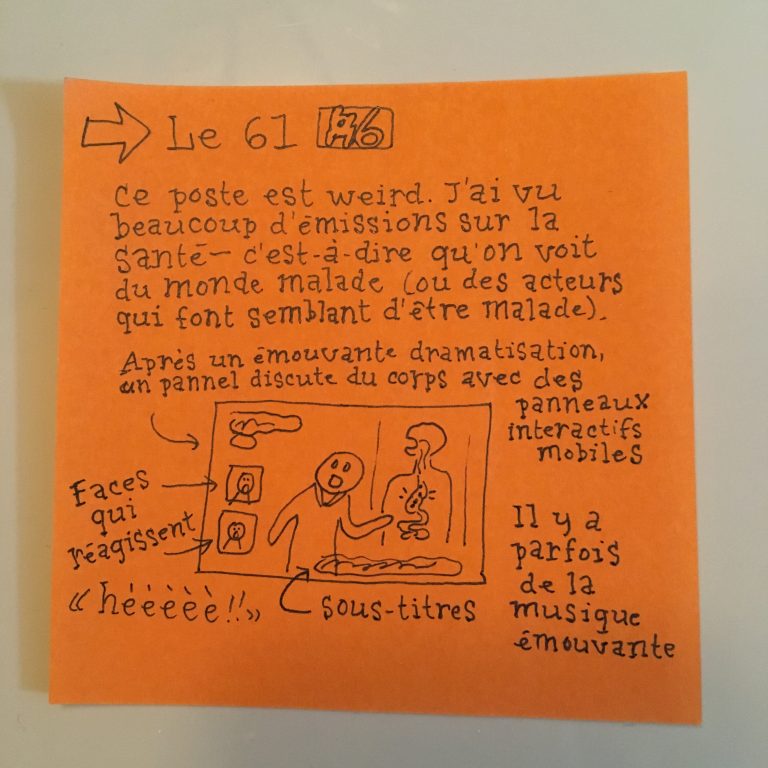 Le 61 #6
Ce poste est weird. J'ai vu
beaucoup d'émissions sur la
santé – c'est-à-dire qu'on voit
du monde malade (ou des acteurs
qui font semblant d'être malade).
Après un émouvante dramatisation,
un pannel discute du corps avec des
panneaux
interactifs
mobiles
Faces
qui
réagissent
« hééèèè!! »
sous-titres
Il y a
parfois
de la
musique
émouvante